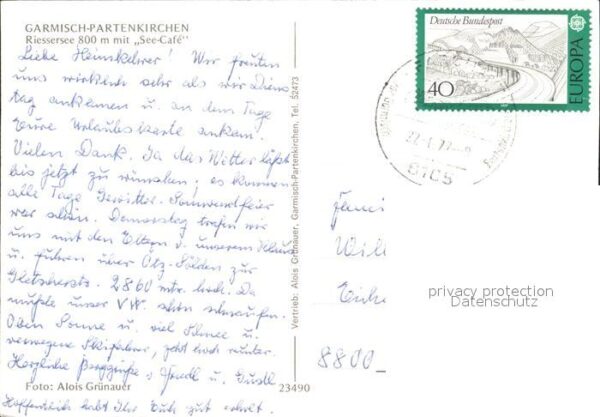 GARMISCH-PARTENKIRCHEN
Riessersee 800 m mit „See-Café"
Liebe Heimkehrer! Wir freuten
uns wirklich sehr als wir Diens
tag ankamen u. an dem Tage
Eure Urlaubskarte ankam.
Vielen Dank. Ja das Wetter läßt
bis jetzt zu wünschen; es kommen
alle Tage Gewitter. Sonnwendfeier
war schön. Donnerstag trafen wir
uns mit den Eltern v. unserem Klaus
u. fuhren über Ötz-Sölden zur
Gletscherstr. 2860 mtr. hoch. Da
mußte unser VW schon schnaufen.
Oben Sonne u. viel Schnee u.
verwegene Skifahrer, jetzt hoch runter.
Herzliche Berggrüße u. Gustl
Foto: Alois Grünauer
23490
Hoffentlich habt Ihr Euch gut erholt.
Vertrieb: Alois Grünauer, Garmisch-Partenkirchen, Tel. 52473
Deutsche Bundespost
EUROPA
40
8105
Fami
Will
Eiche
8800
privacy protection
Datenschutz